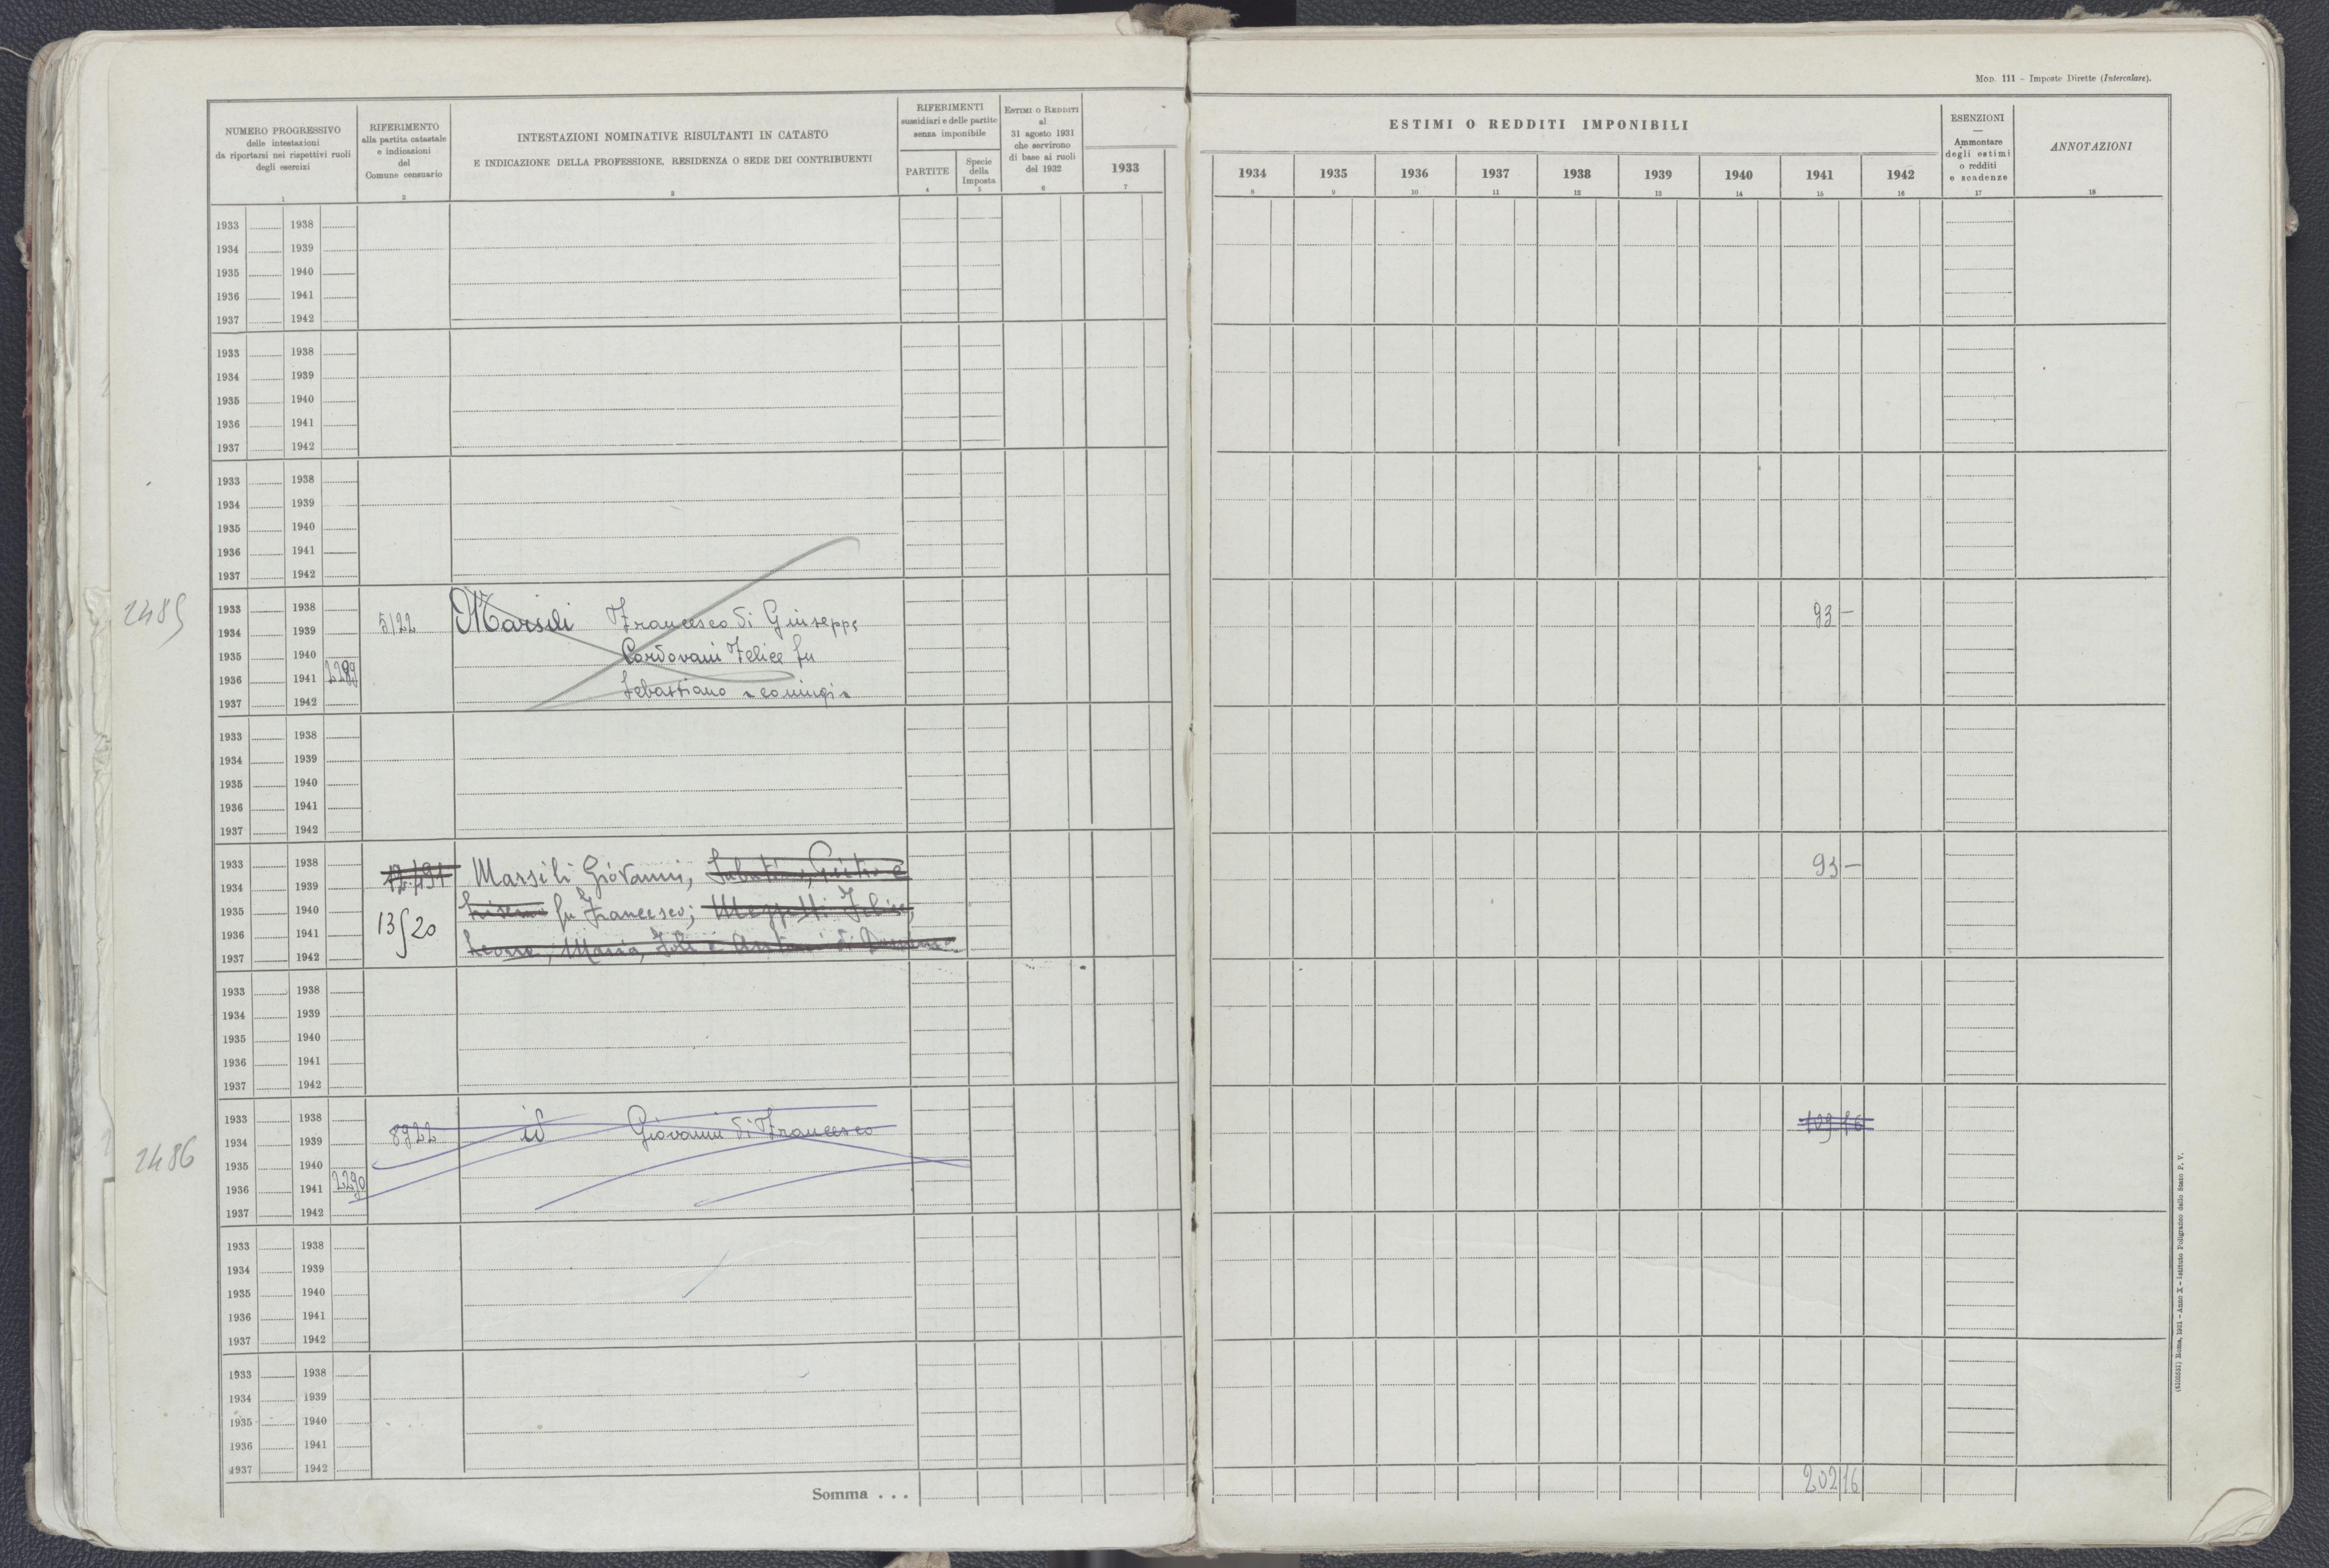 Mod. 111 - Imposte Dirette (Intercalare).
NUMERO PROGRESSIVO
delle intestazioni
da riportarsi nei rispettivi ruoli
degli esercizi
1
RIFERIMENTO
alla partita catastale
e indicazioni
del
Comune censuario
2
INTESTAZIONI NOMINATIVE RISULTANTI IN CATASTO
E INDICAZIONE DELLA PROFESSIONE, RESIDENZA O SEDE DEI CONTRIBUENTI
3
RIFERIMENTI
sussidiari e delle partite
senza imponibile
PARTITE
4
Specie
della
Imposta
5
ESTIMI O REDDITI
al
31 agosto 1931
che servirono
di base ai ruoli
del 1932
6
1933
7
ESTIMI O REDDITI IMPONIBILI
1934 1935 1936 1937 1938 1939 1940 1941 1942
8 9 10 11 12 13 14 15 16
ESENZIONI
—
Ammontare
degli estimi
o redditi
e scadenze
17
ANNOTAZIONI
18
1933 1938
1934 1939
1935 1940
1936 1941
1937 1942
1933 1938
1934 1939
1935 1940
1936 1941
1937 1942
1933 1938
1934 1939
1935 1940
1936 1941
1937 1942
2485
1933 1938
1934 1939 5122 Marsili Francesco di Giuseppe 93 —
1935 1940 Cordovani Felice fu
1936 1941 2289 Sebastiano coniugi
1937 1942
1933 1938
1934 1939
1935 1940
1936 1941
1937 1942
1933 1938 93 —
1934 1939 Marsili Giovanni,
1935 1940 fu Francesco; Felice,
1936 1941 13520 Maria,
1937 1942
1933 1938
1934 1939
1935 1940
1936 1941
1937 1942
2486
1933 1938 109 16
1934 1939 8922 id Giovanni di Francesco
1935 1940
1936 1941 2290
1937 1942
1933 1938
1934 1939
1935 1940
1936 1941
1937 1942
1933 1938
1934 1939
1935 1940
1936 1941
1937 1942
Somma . . . 202 16
(6103551) Roma, 1931 - Anno X - Istituto Poligrafico dello Stato P. V.